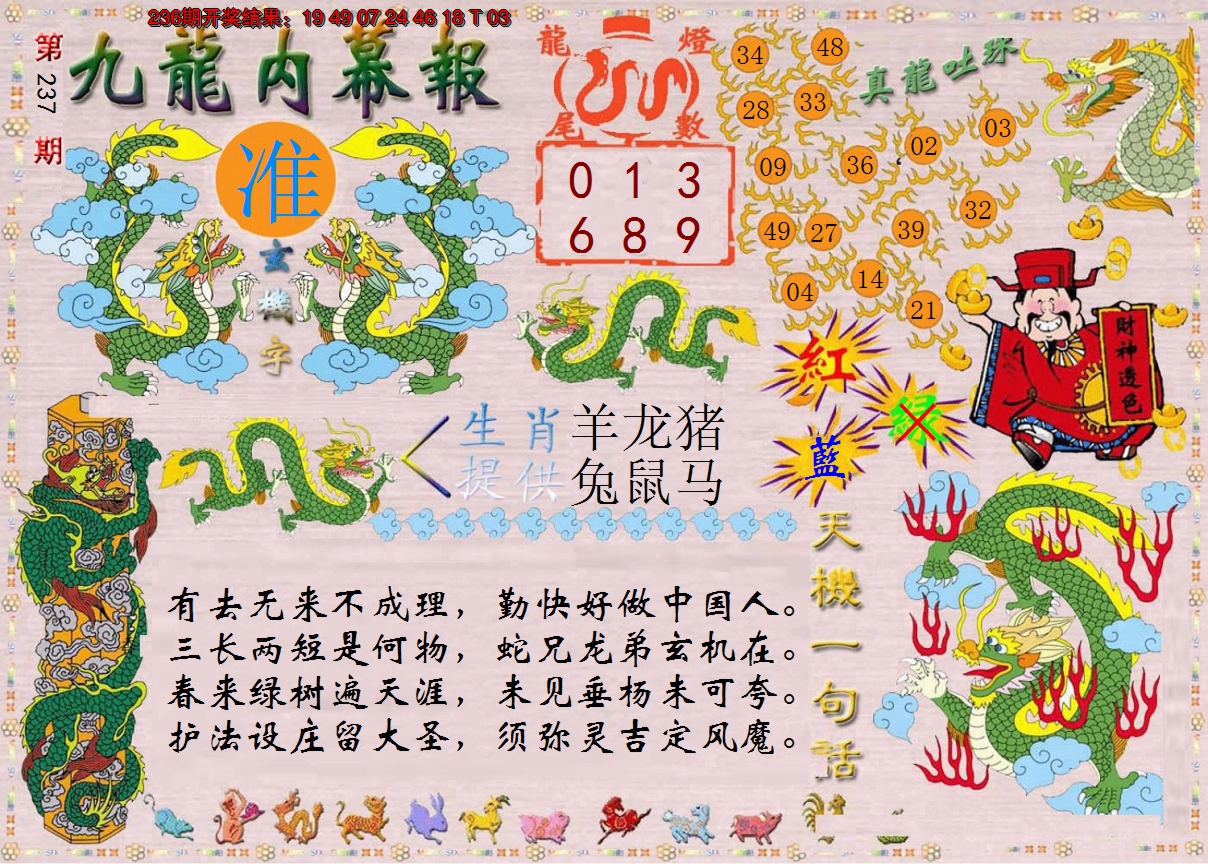 236期开奖结果：19 49 07 24 46 18 T 03
第237期
九龍内幕報
准
玄機字
龍燈
尾數
0 1 3
6 8 9
真龍吐珠
34 48
28 33
02 03
09 36
49 27 39 32
04 14 21
財神透色
紅
绿
藍
生肖 羊龙猪
提供 兔鼠马
天機一句話
有去无来不成理，勤快好做中国人。
三长两短是何物，蛇兄龙弟玄机在。
春来绿树遍天涯，未见垂杨未可夸。
护法设庄留大圣，须弥灵吉定风魔。